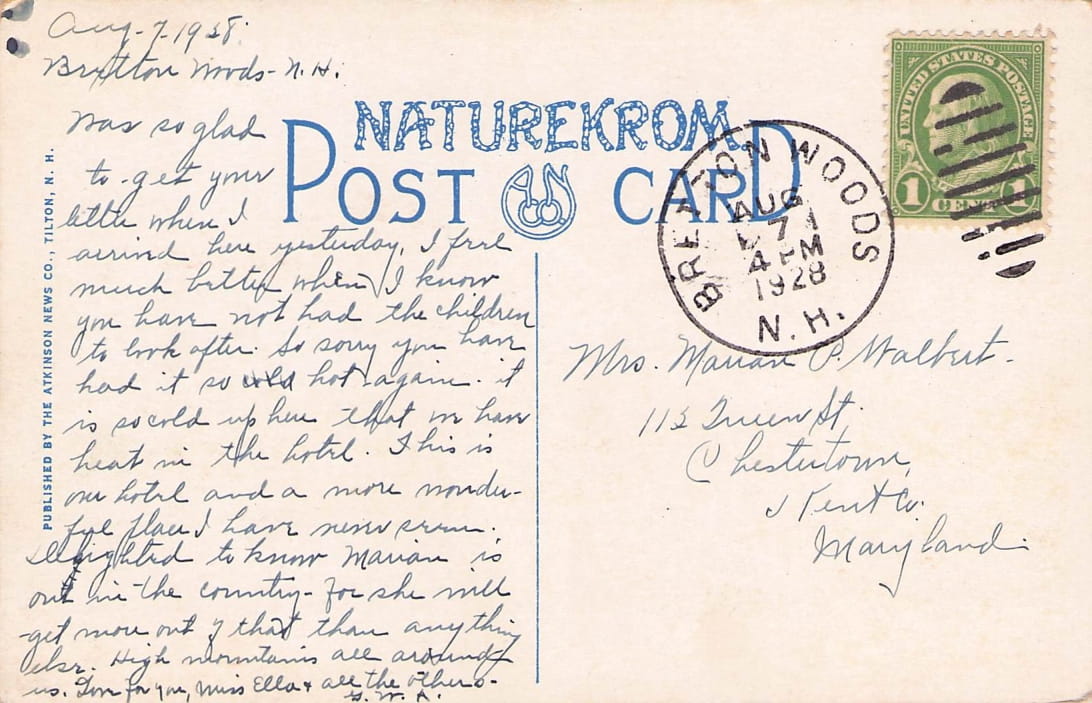 Aug-7-1928.
Bretton Woods-N.H.
Was so glad
to get your
letter when I
arrived here yesterday, I feel
much better when I know
you have not had the children
to look after. So sorry you have
had it so cold hot again. it
is so cold up here that we have
heat in the hotel. This is
our hotel and a more wonder-
ful place I have never seen.
Delighted to know Marian is
out in the country-for she will
get more out of that than anything
else. High mountains all around
us. Love for you, Miss Ella & all the others-
G. W. A.
PUBLISHED BY THE ATKINSON NEWS CO., TILTON, N. H.
NATUREKROM
POST CARD
AN CO
BRETTON WOODS
AUG
7
4 PM
1928
N. H.
UNITED STATES POSTAGE
1 CENT 1
Mrs. Marian P. Walbert-
Queen St.
Chestertown,
Kent Co.
Maryland.